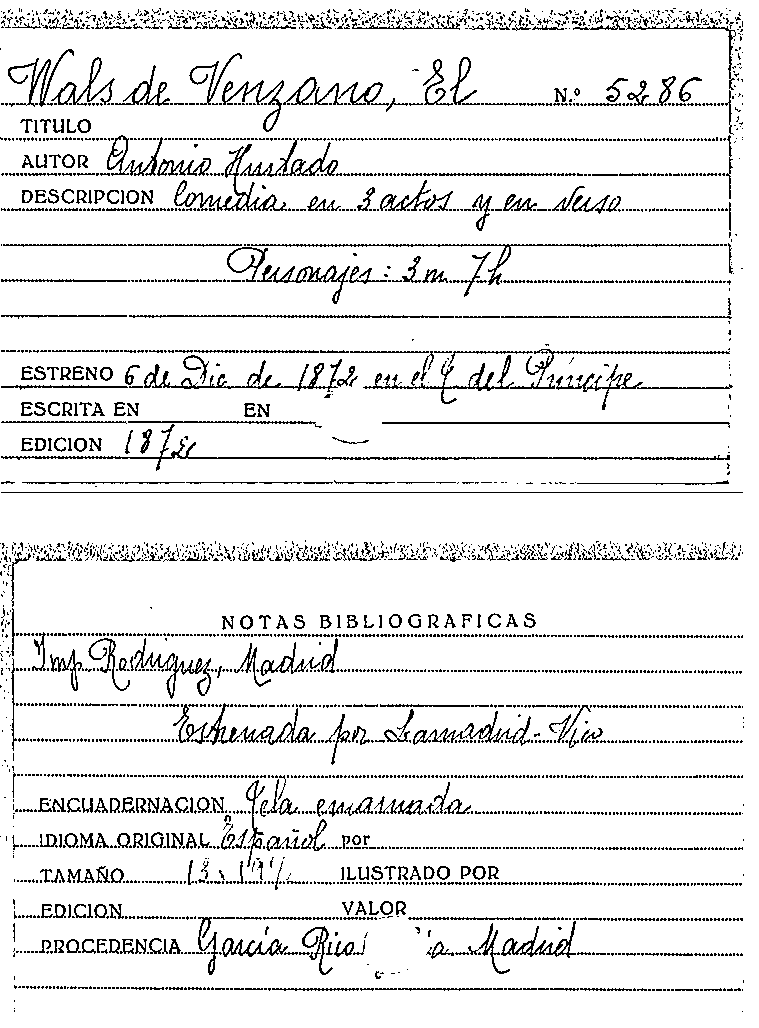 Wals de Venzano, El N.º 5286
TITULO
AUTOR Antonio Hurtado
DESCRIPCION Comedia en 3 actos y en verso
Personajes: 3 m 7 h
ESTRENO 6 de Dic de 1872 en el T del Príncipe
ESCRITA EN EN
EDICION 1872
NOTAS BIBLIOGRAFICAS
Imp Rodriguez, Madrid
Estrenada por Lamadrid-Vico
ENCUADERNACION Tela encarnada
IDIOMA ORIGINAL Español por
TAMAÑO 13 x ILUSTRADO POR
EDICION VALOR
PROCEDENCIA García Rico Madrid